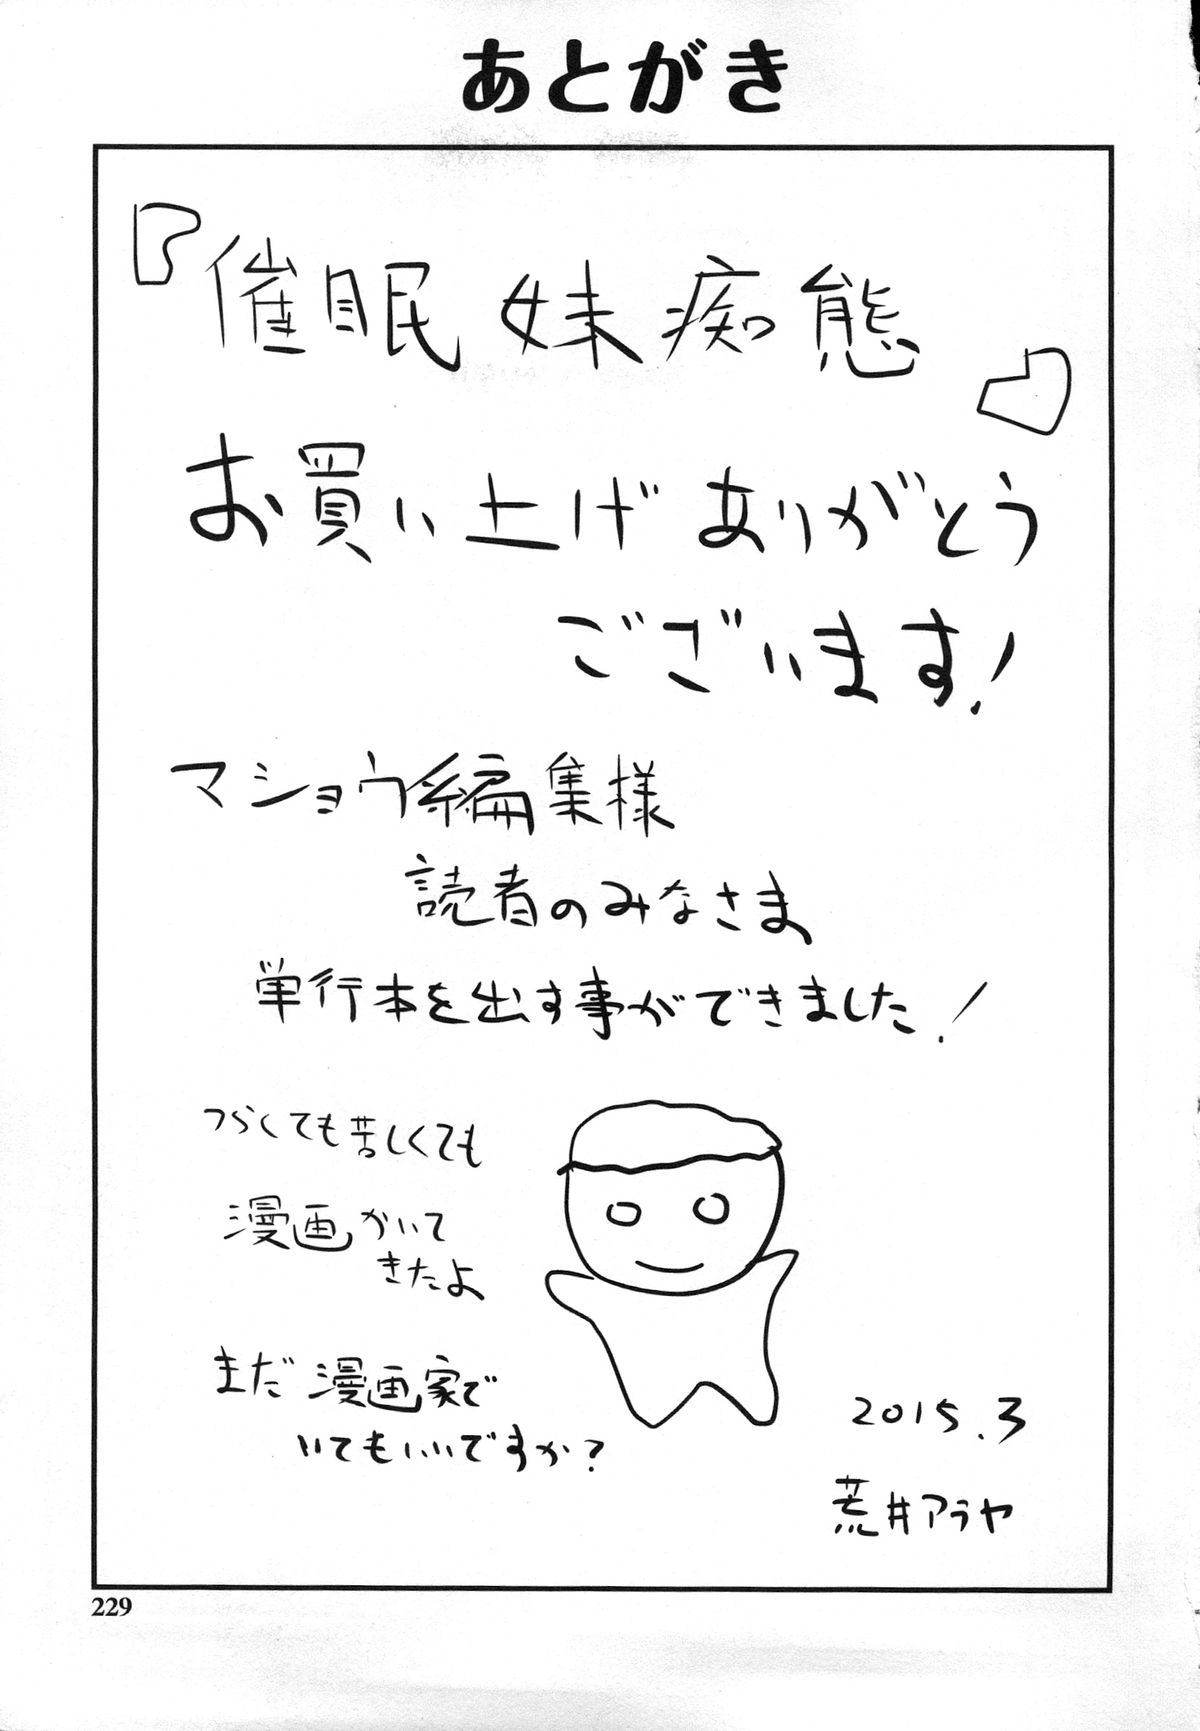 あとがき
『催眠妹痴態』
お買い上げありがとう
ございます!
マショウ編集様
読者のみなさま
単行本を出す事ができました!
つらくても苦しくても
漫画かいて
きたよ
まだ漫画家で
いてもいいですか?
2015.3
荒井アラヤ
229